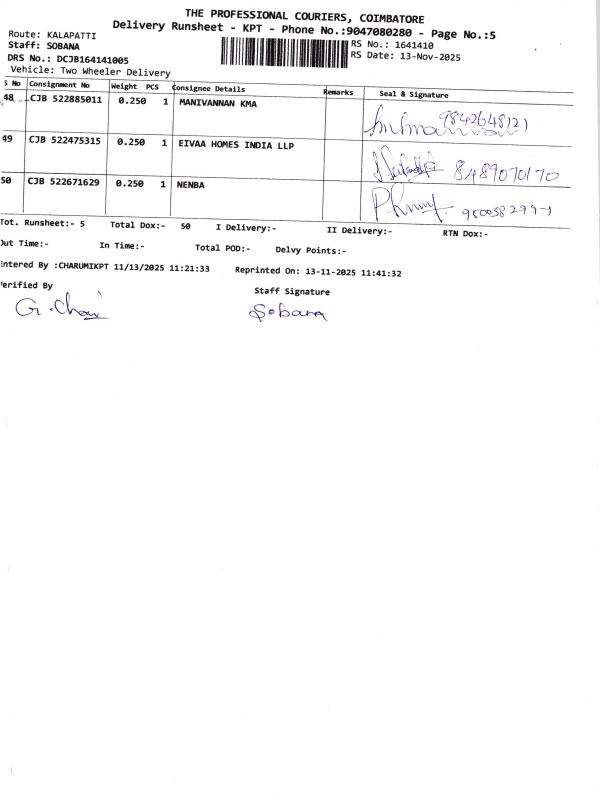 THE PROFESSIONAL COURIERS, COIMBATORE
Delivery Runsheet - KPT - Phone No.:9047080280 - Page No.:5
Route: KALAPATTI
Staff: SOBANA
RS No.: 1641410
DRS No.: DCJB164141005
RS Date: 13-Nov-2025
Vehicle: Two Wheeler Delivery
S No Consignment No Weight PCS Consignee Details Remarks Seal & Signature
48 CJB 522885011 0.250 1 MANIVANNAN KMA
9842648121
49 CJB 522475315 0.250 1 EIVAA HOMES INDIA LLP
8489070170
50 CJB 522671629 0.250 1 NENBA
Tot. Runsheet:- 5 Total Dox:- 50 I Delivery:- II Delivery:- RTN Dox:-
Out Time:- In Time:- Total POD:- Delvy Points:-
Entered By :CHARUMIKPT 11/13/2025 11:21:33 Reprinted On: 13-11-2025 11:41:32
Verified By
Staff Signature
Sobana